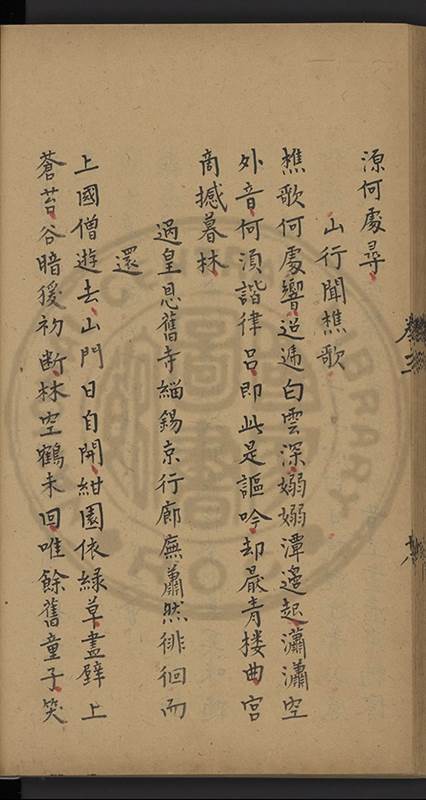 源何處尋
山行聞樵歌
樵歌何處響迢遞白雲深嫋嫋潭邊起瀟瀟空
外音何須諧律呂即此是謳吟却最青楼曲宫
商撼暮林
過皇恩舊寺緇錫京行廊廡蕭然徘徊而
還
上國僧遊去山門日自開紺園依緑草畫壁上
蒼苔谷暗猨初断林空鶴未回唯餘舊童子笑
卷二